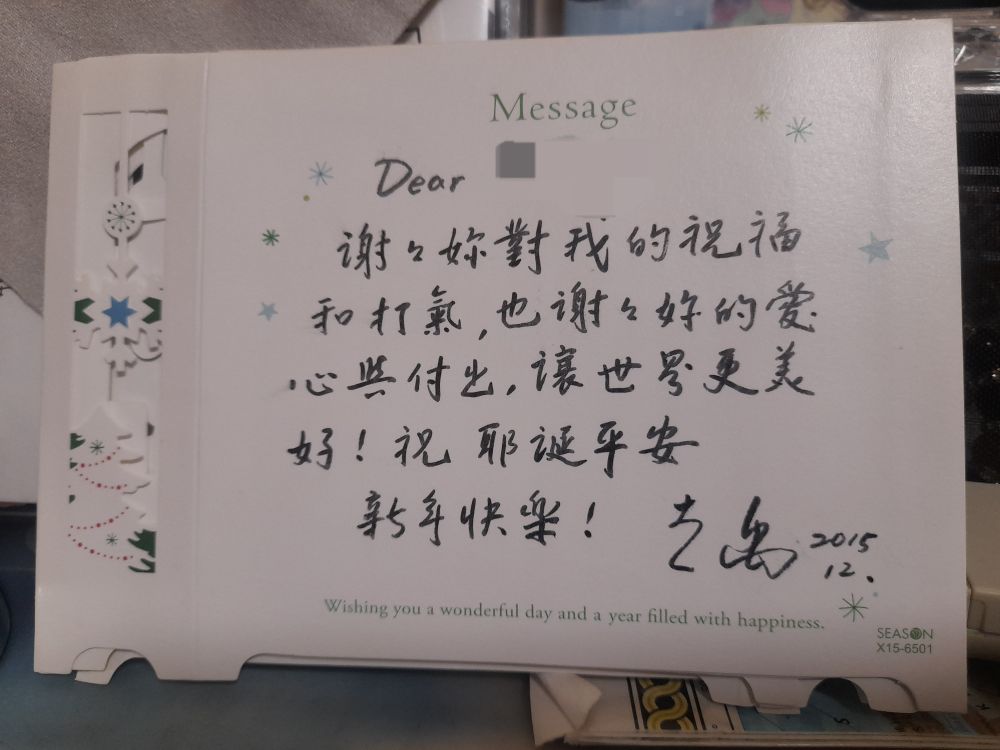 Message
Dear
謝々妳對我的祝福
和打氣,也謝々妳的愛
心與付出,讓世界更美
好!祝耶誕平安
新年快樂!
2015
12.
Wishing you a wonderful day and a year filled with happiness.
SEASON
X15-6501